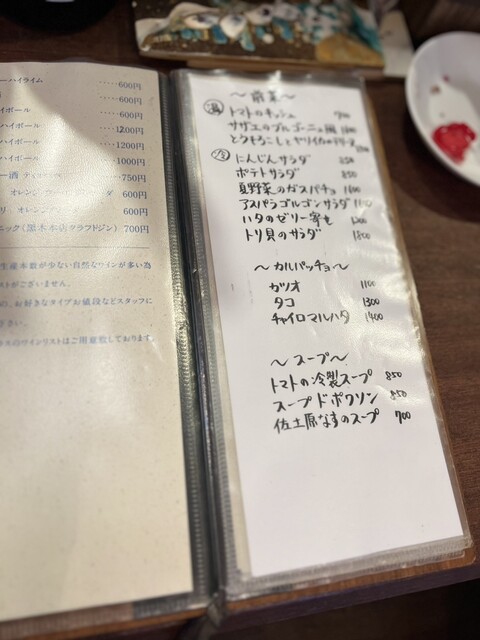 ーハイライム ····· 600円
····· 600円
ボール ····· 600円
ハイボール ····· 1200円
ハイボール ····· 1200円
ハイボール ····· 1000円
ー酒 ····· 750円
オレンジ 600円
リー オレンジ 600円
ニック(黒木本店マラフドジン) 700円
生産本数が少ない自然なワインが多い為
ストがございません。
の、お好きなタイプお値段などスタッフに
ださい。
スのワインリストはご用意致しております。
〜前菜〜
温 トマトのキッシュ 700
サザエのブルゴーニュ風
とうもろこしとヤリイカの
冷 にんじんサラダ 850
ポテトサラダ 850
夏野菜のガスパチョ 1100
アスパラゴルゴンサラダ
ハタのゼリー寄せ 1200
トリ貝のサラダ 1800
〜カルパッチョ〜
カツオ 1100
タコ 1300
チャイロマルハタ 1400
〜スープ〜
トマトの冷製スープ 850
スープ ド ポワソン 850
佐土原なすのスープ 700